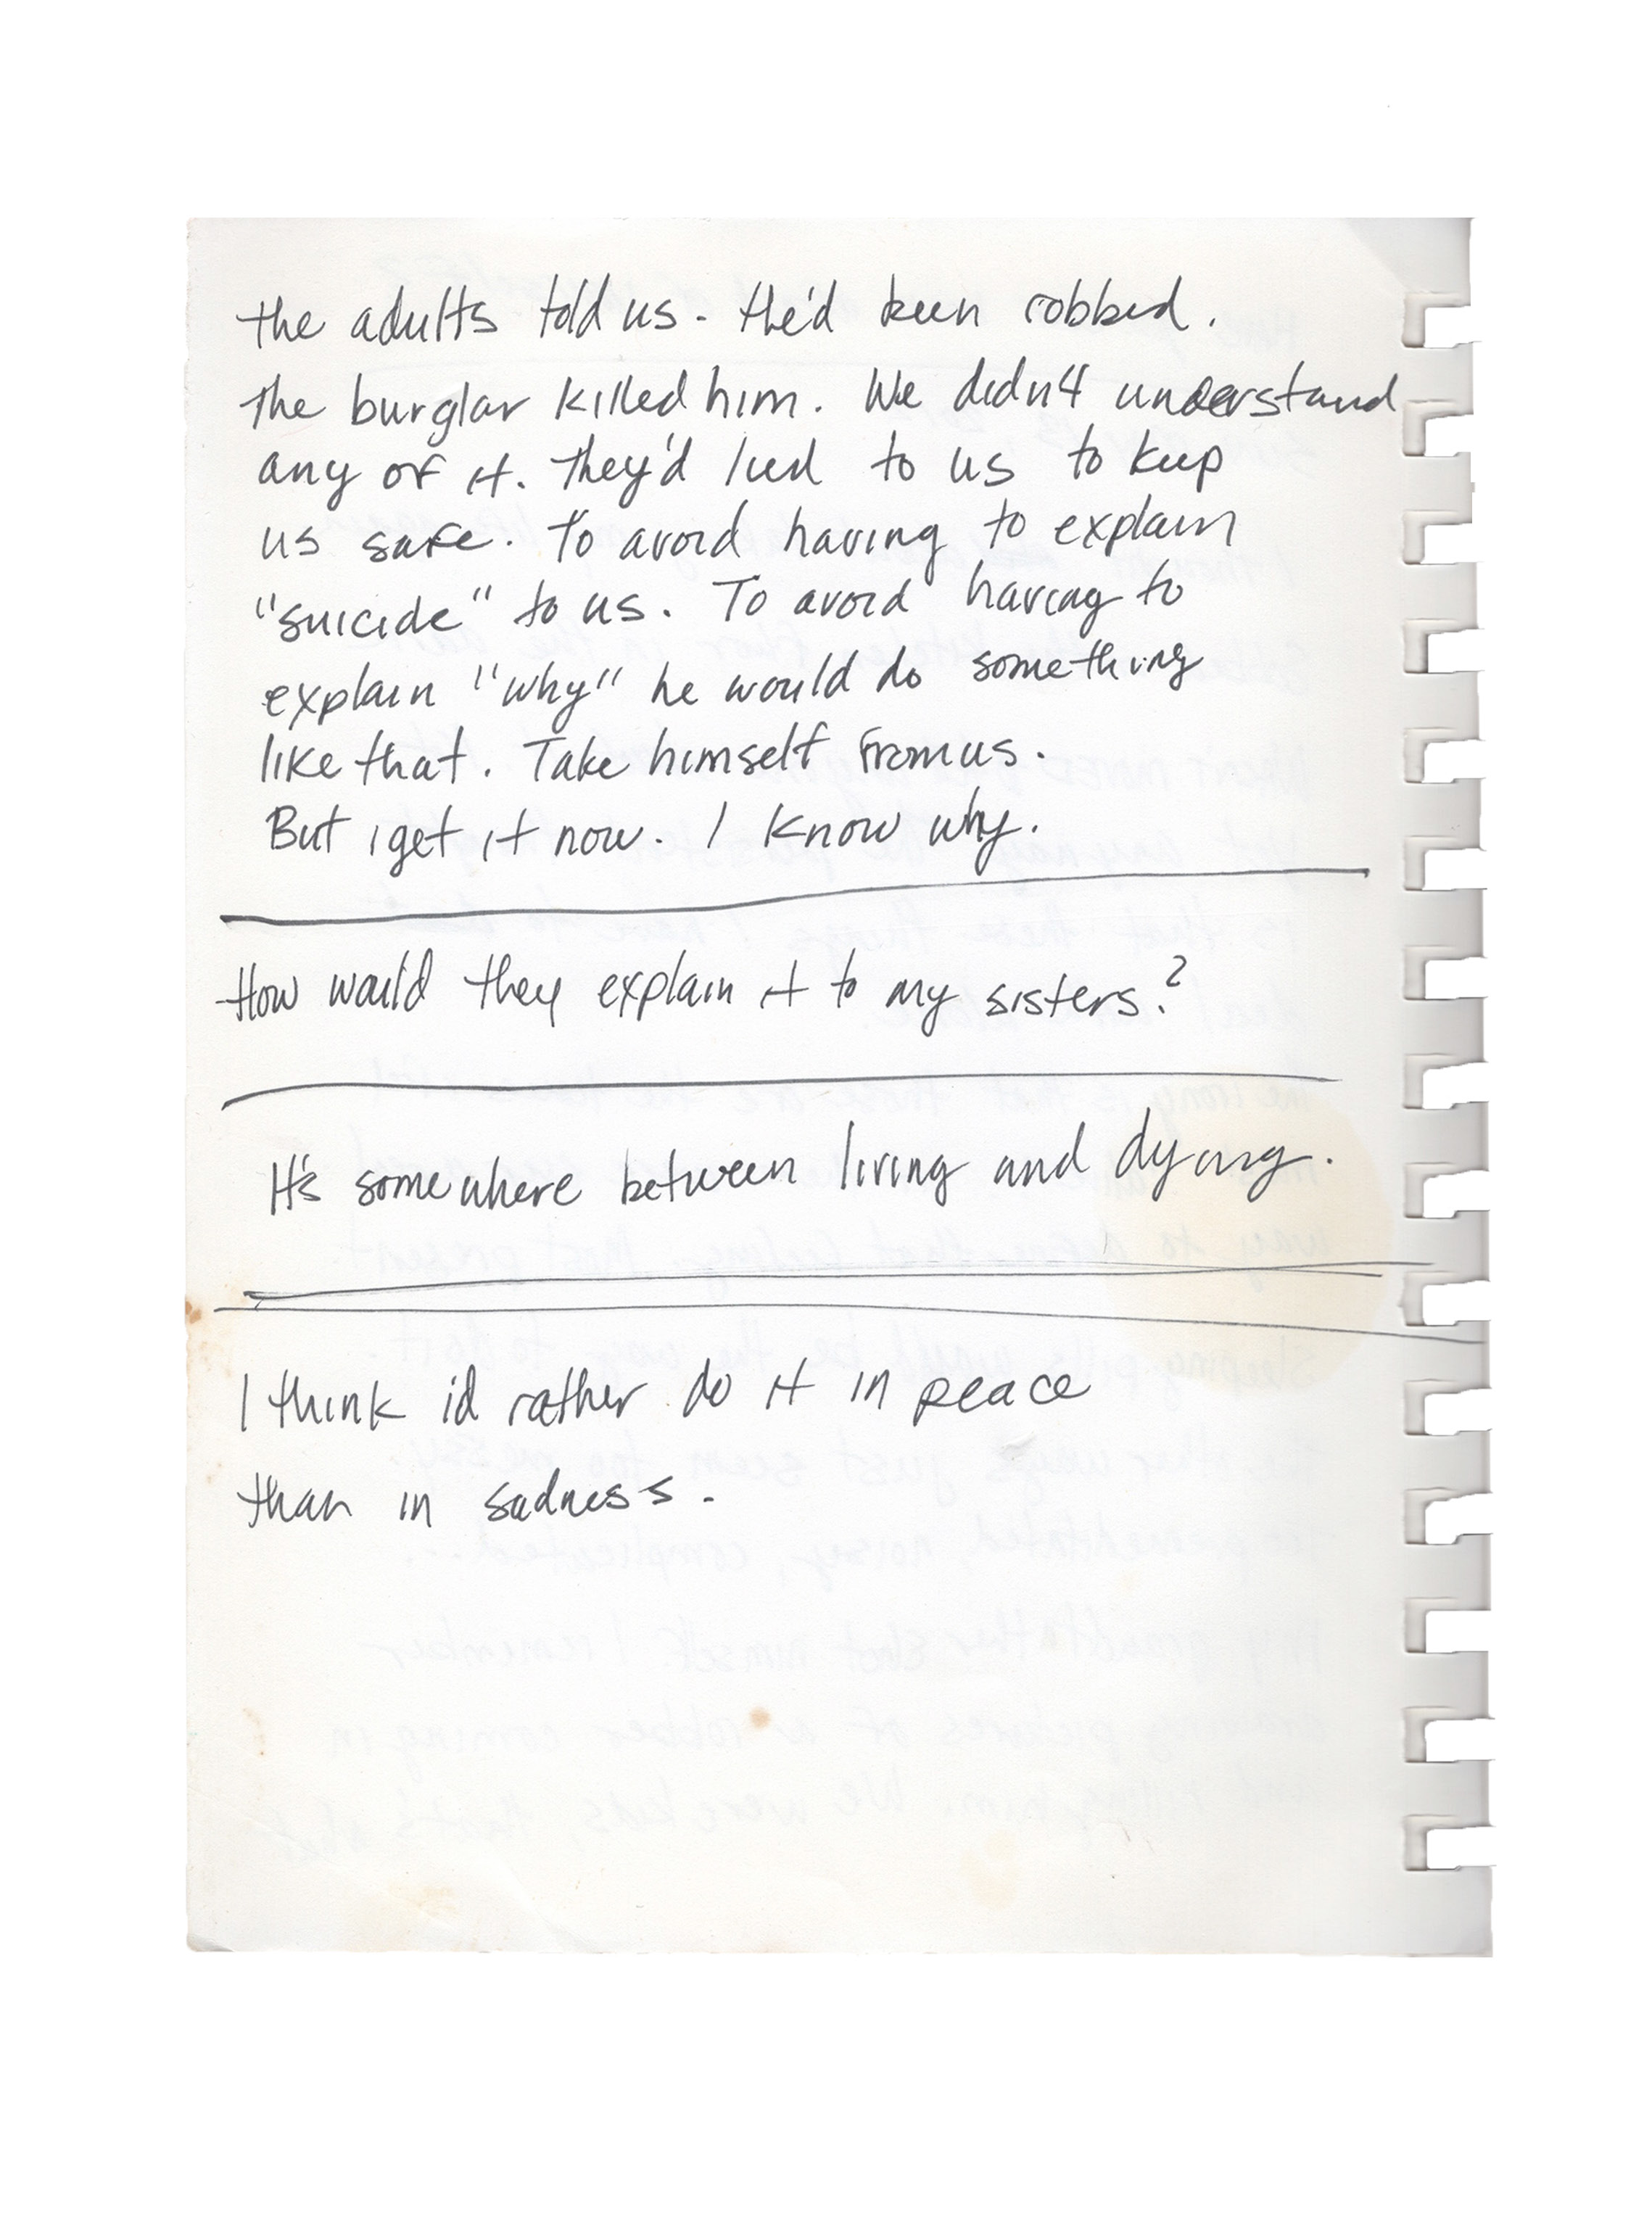 the adults told us. He'd been robbed.
The burglar killed him. We didn't understand
any of it. They'd lied to us to keep
us safe. To avoid having to explain
"suicide" to us. To avoid having to
explain "why" he would do something
like that. Take himself from us.
But i get it now. I know why.
How would they explain it to my sisters?
It's somewhere between living and dying.
I think i'd rather do it in peace
than in sadness.